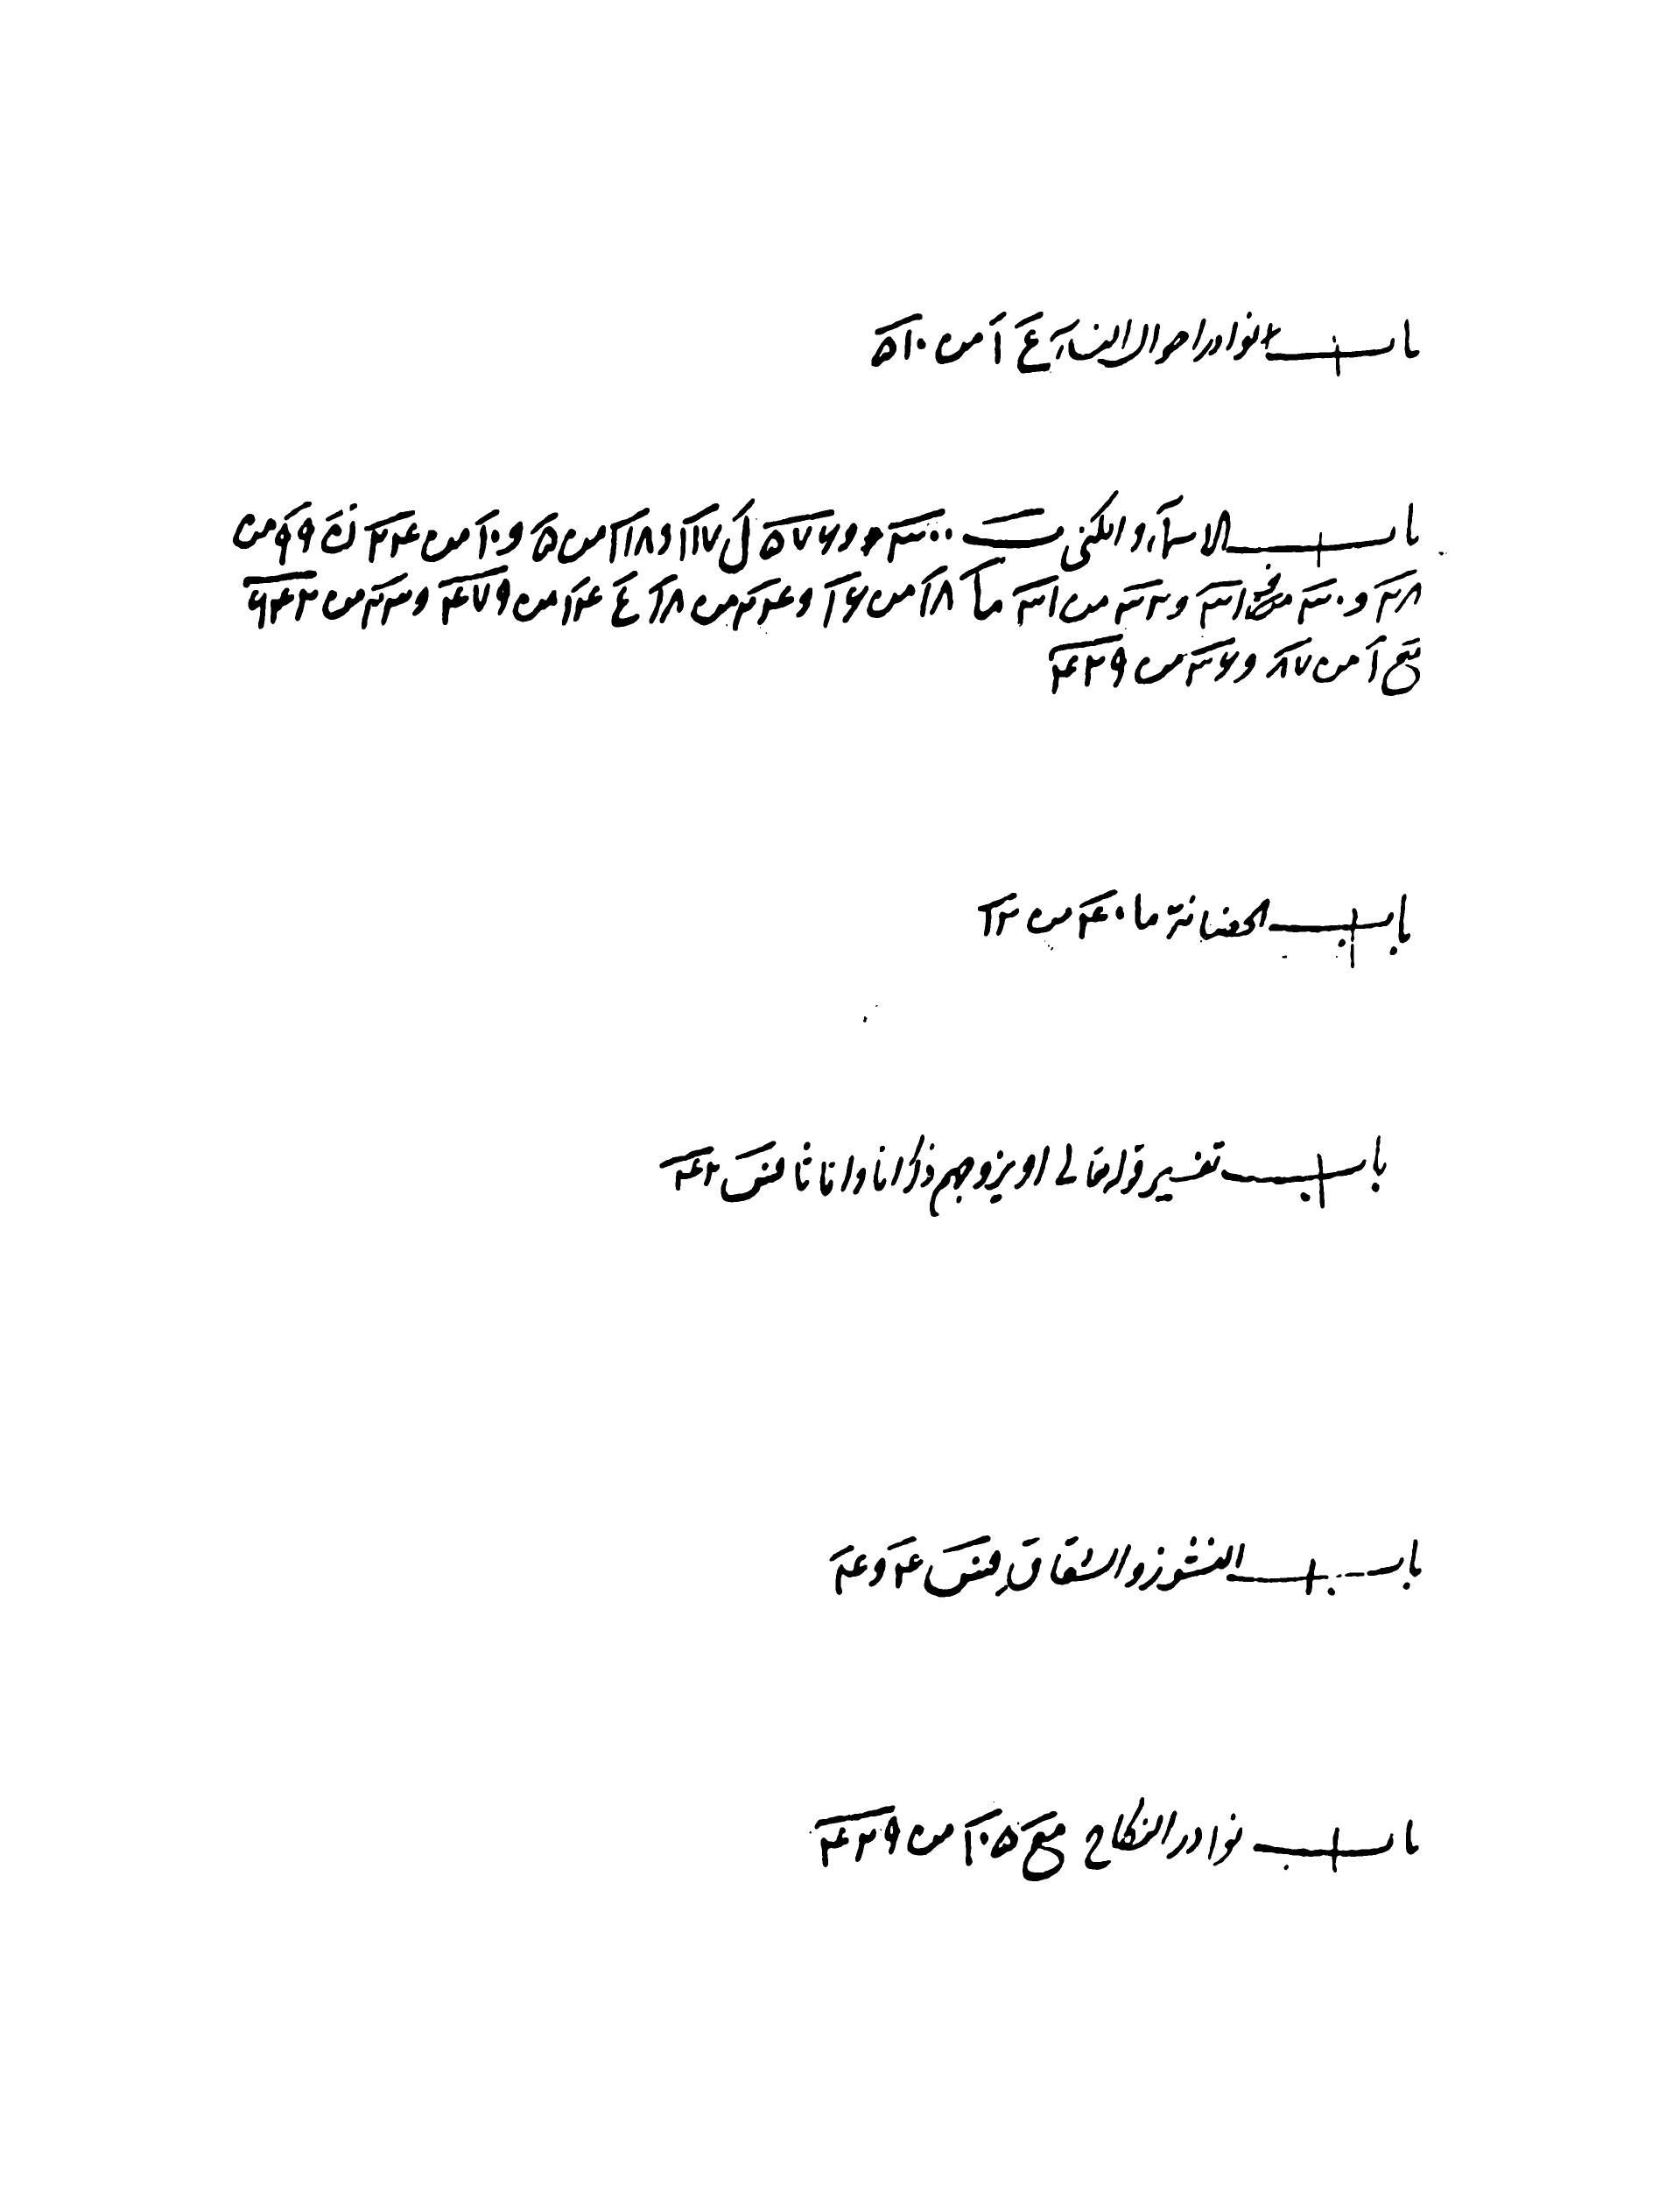 باب نوادر احوال النساء ع ١ من ٥١٠
باب الاسماء والكنى ب ٣٠٠ و ٥٧٦ ل ١١٧ و ١١٨ من ٥ و ١٠ من ٢٤ ن ٩ و ٩ من
٣٨ و ٣٠ من ٣١ و ٣٢ من ٣١ ما ١٨ من ١٦ و ٢٤ من ١٨ ع ١٤ من ٤٧٩ و ٢٣ من ٦٤٢
مع ١ من ٨٧ و ٣٦ من ٤٢٩
باب الحضانة ما ٤٠ من ١٢
باب تفسير قوله تعالى او يزوجهم ذكرانا واناثا فس ٤٢
باب النشوز والشقاق فس ٤ و ٤
باب نوادر النكاح مع ١٠٥ من ٤٢٩